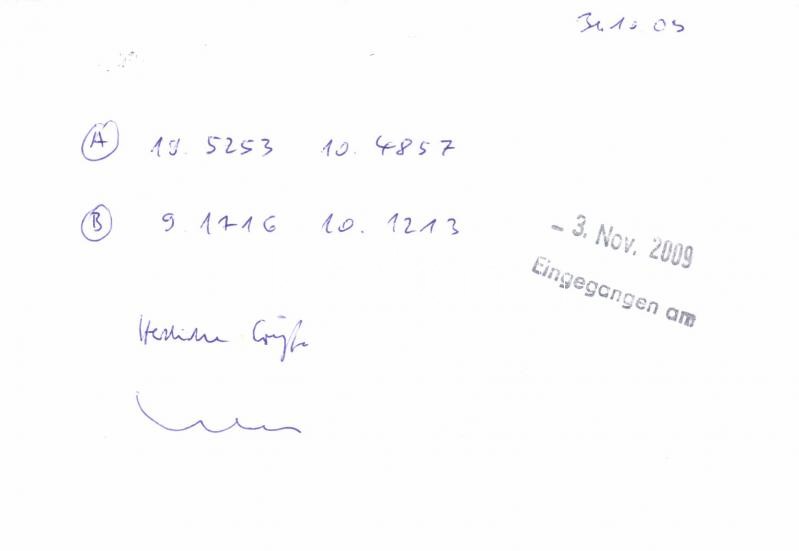 31.10 09
A 5253 10. 4857
B 9. 1716 10. 1213
- 3. Nov. 2009
Eingegangen am
Herzliche Grüße